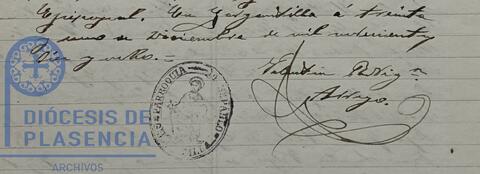 Episcopal. En Gargantilla á treinta
y uno de Diciembre de mil novecientos
Diez y ocho. =
Valentin Rodrigz
Arroyo.
PARROQUIA DE S. PABLO
DIÓCESIS DE
PLASENCIA
ARCHIVOS